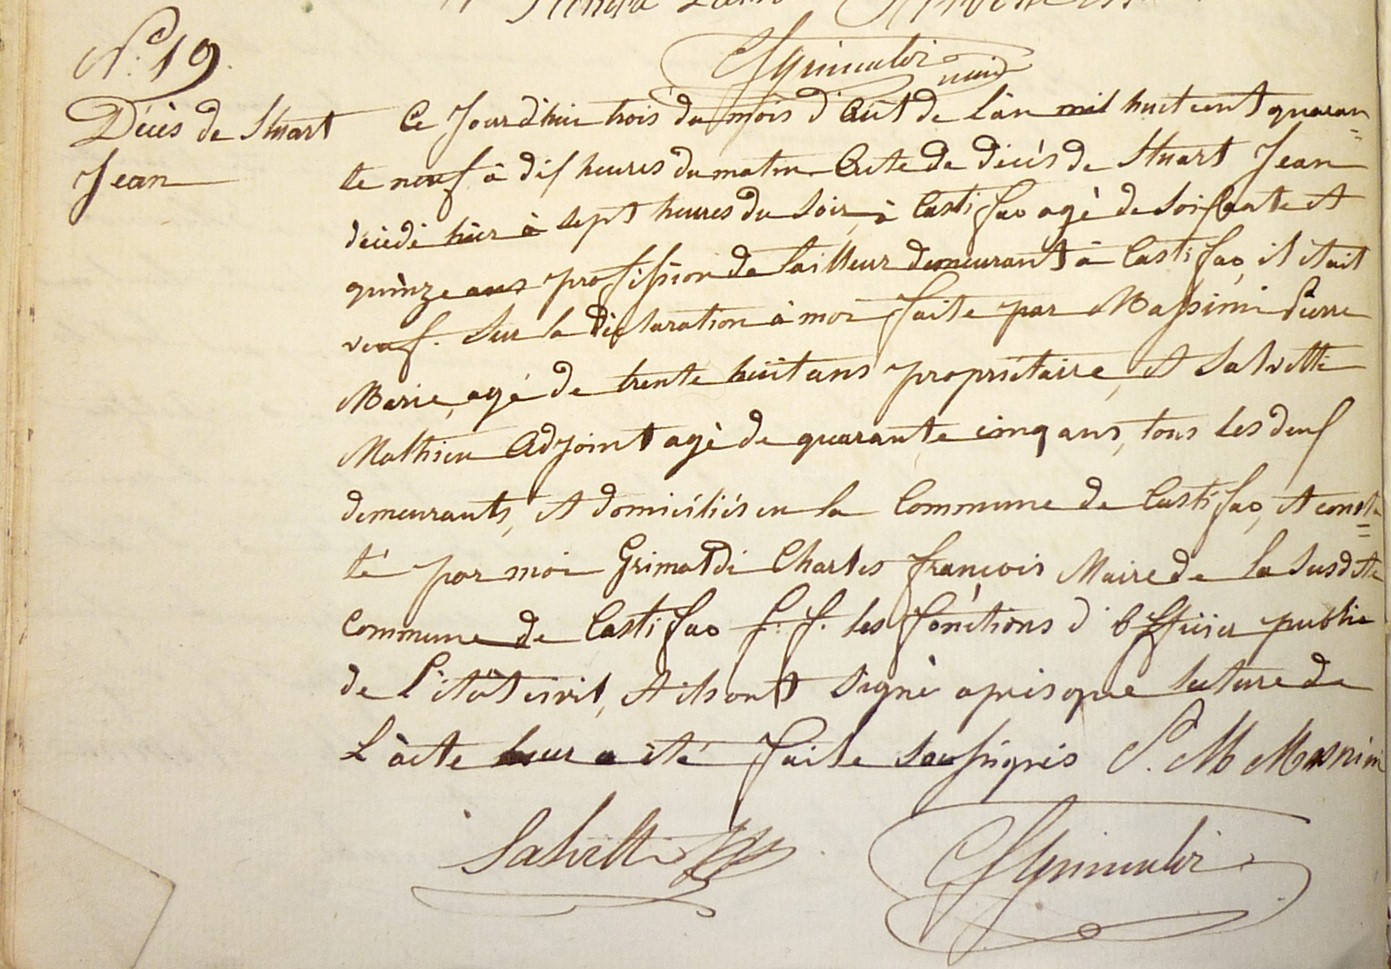 N.° 19.
CfGrimaldi
maire
Décès de Stuart
Jean
Ce Jourd'hui trois du mois d'Aût de l'àn mil huit cent quaran=
te neuf à dix heures du matin Acte de décès de Stuart Jean
décédé hièr à sept heures du Soir, à Castifao agè de Soixante et
quinze ans profession de tailleur demeurant à Castifao, il était
veuf. Sur la déclaration à moi faite par Massimi Pierre
Marie, agé de trente huit ans propriétaire, et Salvetti
Mathieu Adjoint agè de quarante cinq ans, tous les deux
demeurants, et domiciliés en la Commune de Castifao, et consta=
té par moi Grimaldi Charles françois Maire de la Susdite
Commune de Castifao f. f. les fonctions d'officier public
de l'étàt civil, et ils ont Signé aprés que lecture de
L'àcte leur a été faite Soussignés P. M Massimi
Salvetti CfGrimaldi